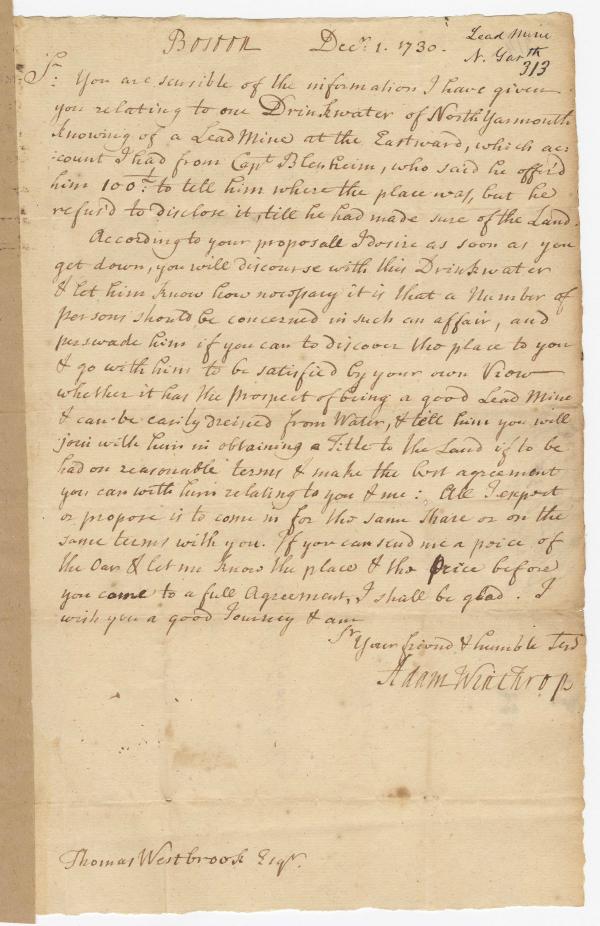 Boston Decr. 1. 1730.
Lead Mine
N. Yarmth
313
Sr.
You are sensible of the information I have given
you relating to one Drinkwater of North Yarmouth
knowing of a Lead Mine at the Eastward, which ac=
:count I had from Capt Blenheim, who said he offer'd
him 100£. to tell him where the place was, but he
refus'd to disclose it, till he had made sure of the Land.
According to your proposall I desire as soon as you
get down, you will discourse with this Drinkwater
& let him know how necessary it is that a Number of
persons should be concerned in such an affair, and
perswade him if you can to discover the place to you
& go with him to be satisfied by your own View
whether it has the prospect of being a good Lead Mine
& can be easily dreined from Water, & tell him you will
join with him in obtaining a Title to the Land if to be
had on reasonable terms & make the best agreement
you can with him relating to you & me: All I expect
or propose is to come in for the same share or on the
same terms with you. If you can send me a peice of
the Oar & let me know the place & the price before
you come to a full Agreement, I shall be glad. I
wish you a good Journey & am
Sr. Your friend & humble Servt
Adam Winthrop
Thomas Westbrook Esqr.